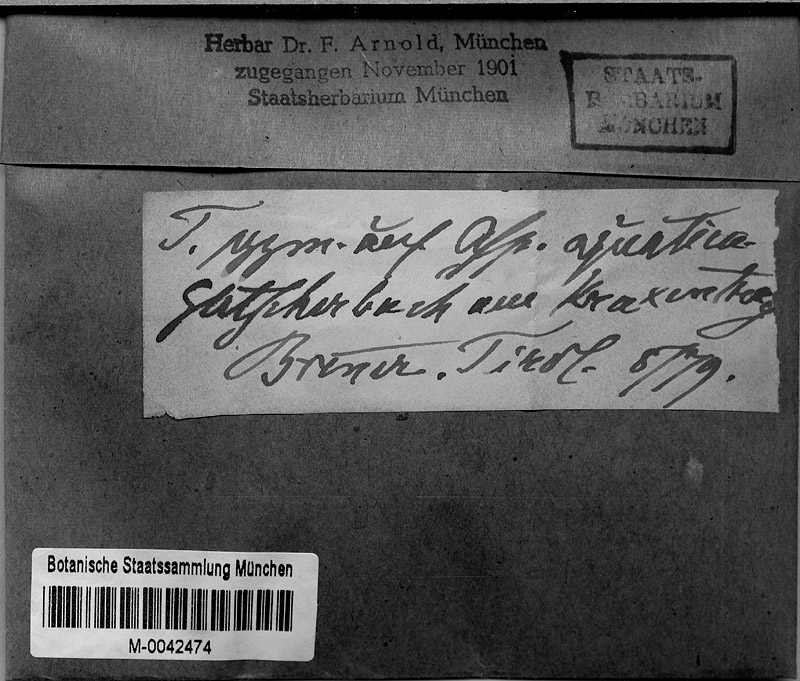 Herbar Dr. F. Arnold, München
zugegangen November 1901
Staatsherbarium München
STAATS-
HERBARIUM
MÜNCHEN
T. auf Asp. aquatica
Gletscherbach am Kraxentrag
Brenner. Tirol.
Botanische Staatssammlung München
M-0042474